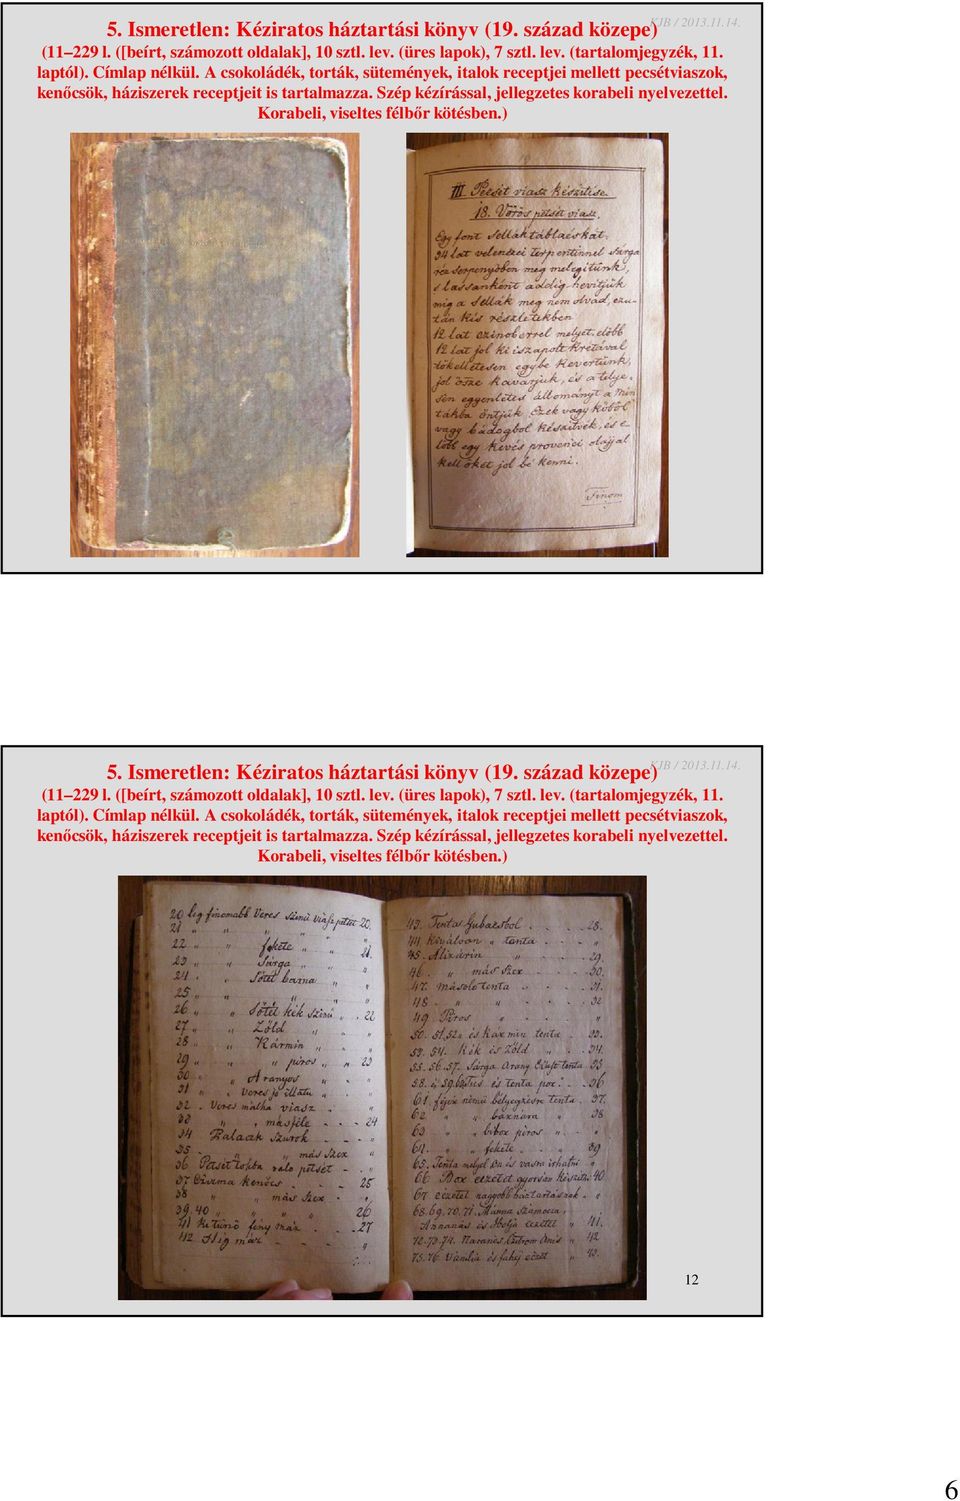 KJB / 2013.11.14.
5. Ismeretlen: Kéziratos háztartási könyv (19. század közepe)
(11–229 l. ([beírt, számozott oldalak], 10 sztl. lev. (üres lapok), 7 sztl. lev. (tartalomjegyzék, 11.
laptól). Címlap nélkül. A csokoládék, torták, sütemények, italok receptjei mellett pecsétviaszok,
kenőcsök, háziszerek receptjeit is tartalmazza. Szép kézírással, jellegzetes korabeli nyelvezettel.
Korabeli, viseltes félbőr kötésben.)
III. Pecsét viasz készitise.
18. Vörös petsét viasz.
Egy font sellák táblácskát,
34 lat velenczei terpentinnel sárga
réz serpenyőben meg melegitünk,
slassanként addig hevitjük
mig a sellák meg nem olvad, ezu-
tán kis részletekben
12 lat czinoberrel melyet előbb
12 lat jol ki iszapolt krétával
tökelletesen egybe kevertünk,
jol össze kavarjuk, és a telye-
sen egyenletes állományt a min
tákba öntjük. Ezek vagy köböl
vagy bádogbol készitvék, es e-
löbb egy kevés provenci olajjal
kell öket jol bé kenni.
Finom
KJB / 2013.11.14.
5. Ismeretlen: Kéziratos háztartási könyv (19. század közepe)
(11–229 l. ([beírt, számozott oldalak], 10 sztl. lev. (üres lapok), 7 sztl. lev. (tartalomjegyzék, 11.
laptól). Címlap nélkül. A csokoládék, torták, sütemények, italok receptjei mellett pecsétviaszok,
kenőcsök, háziszerek receptjeit is tartalmazza. Szép kézírással, jellegzetes korabeli nyelvezettel.
Korabeli, viseltes félbőr kötésben.)
20 leg finomabb Veres szinü viasz petsét 20.
21 " " " " "
22 " " fekete " " 21.
23 " " Sárga " " "
24 " " Sötét barna " "
25 " " " " " "
26 " " Sötét kék szinü " 22
27 " " Zöld " " "
28 " " Kármin " " "
29 " " " piros " " 23
30 " " Aranyos " "
31 " " Veres jó illatu " "
32 . Veres márha viasz . "
33 " " másféle - - - 24
34 Palaczk szurok - - - "
35 - " " más szer "
36 Petsét tokba való petsét - . "
37 Csizma kenöcs - - - 25
38 " " más szer - . "
39. 40 " " " " 26
41 kitünö fény máz . - - . 27
42. Hig máz - - - "
43. Tenta Gubacsbol . - - - 28.
44. Kiválóan " tenta . - - - "
45. Alizárin " - - - . 29.
46. " más szer - - - 30.
47. másoló tenta . - . - 31.
48. - " " - - . . 32
49. Piros " - . - "
50. 51. 52 és Karmin tenta . . 33.
53. 54. Kék és Zöld " . . 34.
55. 56. 57. Sárga Arany Ezüst tenta 35
61. fejér nemü bélyegzésre tenta. 37.
62 " " barnára " 38
63. " " bibor piros . - . "
64. " " fekete . " 39
66 Bor eczetet gyorsan késziteni 40.
67 eczetet nagyobb háztartásnak . "
68. 69. 70. 71. Málna Szamocza,
Ananás és Ibolja eczetet " 41.
72. 73. 74. Narancs, Czitrom Anis " 42
75. 76. Vanilia és fahéj eczét " 43.
12
6